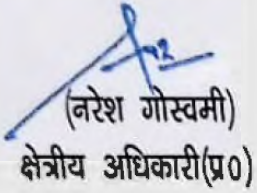 (नरेश गोस्वामी)
क्षेत्रीय अधिकारी(प्र0)